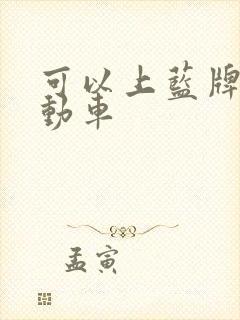 可以上藍牌
動車
孟寅